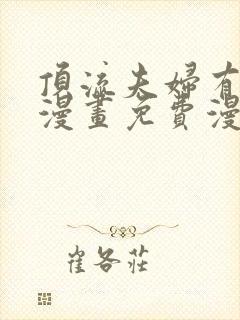 頂流夫婦有
漫畫免費漫
崔各莊